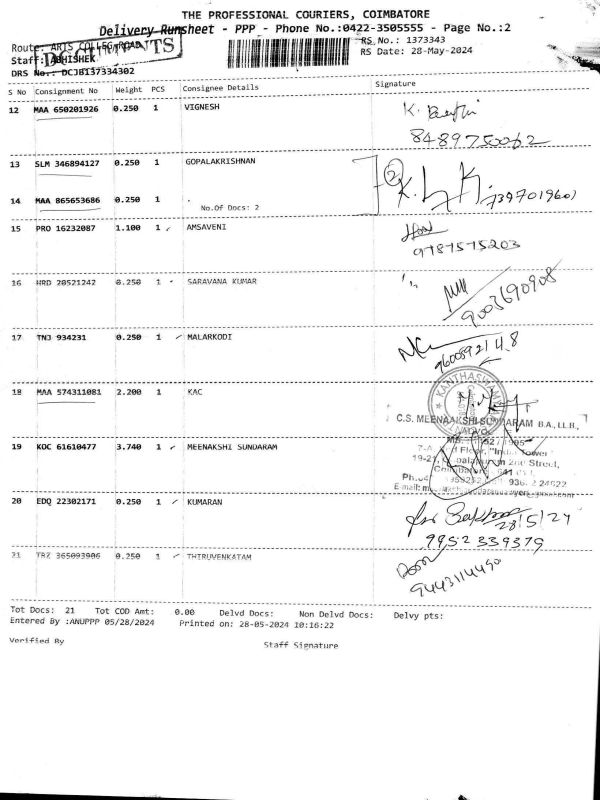 THE PROFESSIONAL COURIERS, COIMBATORE
Delivery Runsheet - PPP - Phone No.:0422-3505555 - Page No.:2
Route: ARTS COLLEG ROAD RS No.: 1373343
Staff: ABHISHEK RS Date: 28-May-2024
DOCUMENTS
DRS No.: DCJB137334302
S No Consignment No Weight PCS Consignee Details Signature
12 MAA 650201926 0.250 1 VIGNESH
8489750062
13 SLM 346894127 0.250 1 GOPALAKRISHNAN
2
14 MAA 865653686 0.250 1 . 7397019601
No.Of Docs: 2
15 PRO 16232087 1.100 1 AMSAVENI
9787575203
16 HRD 20521242 0.250 1 SARAVANA KUMAR
9003690908
17 TNJ 934231 0.250 1 MALARKODI
18 MAA 574311081 2.200 1 KAC
KANTHASWAMY
C.S. MEENAAKSHI SUNDARAM B.A., LL.B.,
19 KOC 61610477 3.740 1 MEENAKSHI SUNDARAM
Floor, "India Tower"
2nd Street,
20 EDQ 22302171 0.250 1 KUMARAN
28/5/24
9952339379
21 TRZ 365093906 0.250 1 THIRUVENKATAM
9443114490
Tot Docs: 21 Tot COD Amt: 0.00 Delvd Docs: Non Delvd Docs: Delvy pts:
Entered By :ANUPPP 05/28/2024 Printed on: 28-05-2024 10:16:22
Verified By Staff Signature